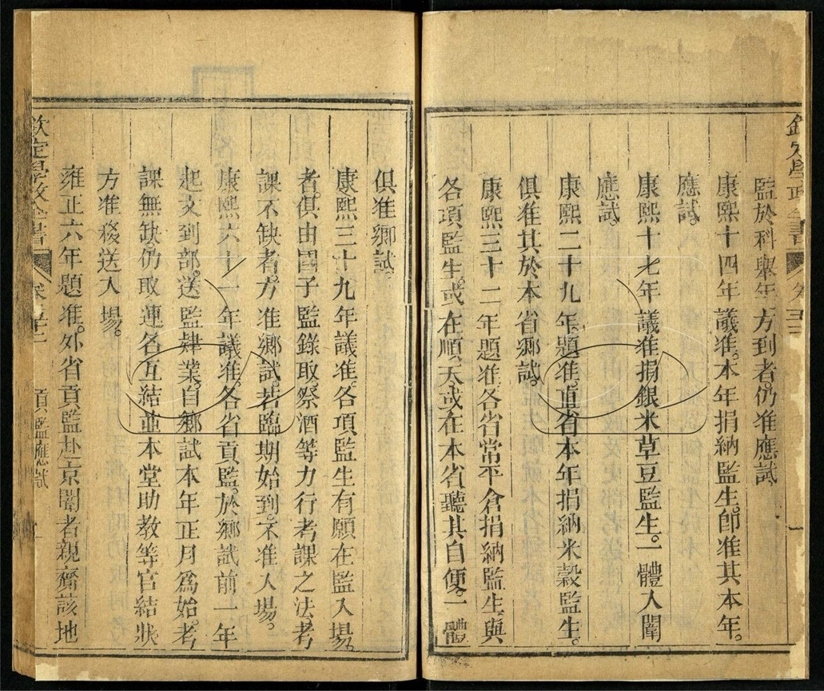 監於科舉年方到者仍准應試
康熙十四年議准本年捐納監生卽准其本年
應試
康熙十七年議准捐銀米草豆監生一體入闈
應試
康熙二十九年題准直省本年捐納米穀監生
俱准其於本省鄉試
康熙三十二年題准各省常平倉捐納監生與
各項監生或在順天或在本省聽其自便一體
欽定學政全書
卷
貢監應試
俱准鄉試
康熙三十九年議准各項監生有願在監入場
者俱由國子監錄取祭酒等力行考課之法考
課不缺者方准鄉試若臨期始到不准入場
康熙六十一年議准各省貢監於鄉試前一年
起文到部送監肄業自鄉試本年正月爲始考
課無缺仍取連名互結並本堂助教等官結狀
方准錄送入場
雍正六年題准外省貢監赴京闈者親齎該地